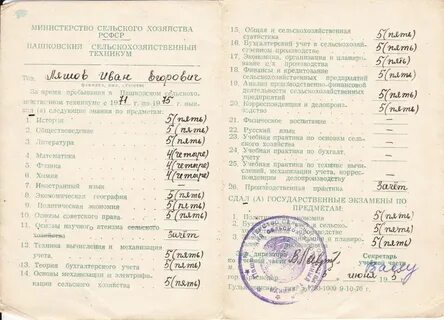 МИНИСТЕРСТВО СЕЛЬСКОГО ХОЗЯЙСТВА
РСФСР
ПАШКОВСКИЙ СЕЛЬСКОХОЗЯЙСТВЕННЫЙ
ТЕХНИКУМ
Тов. Ляшов Иван Егорович
За время пребывания в Пашковском сельскохо-
зяйственном техникуме с 1971 г. по 1975 г. выя-
вил(а) следующие знания по предметам:
1. История 5 (пять)
2. Обществоведение 5 (пять)
3. Литература 5 (пять)
4. Математика 4 (четыре)
5. Физика 4 (четыре)
6. Химия 4 (четыре)
7. Иностранный язык —
8. Экономическая география 5 (пять)
9. Политическая экономия 5 (пять)
10. Основы советского права 5 (пять)
11. Основы научного атеизма сельского
хозяйства Зачёт
12. Техника вычисления и механизация
учета 5 (пять)
13. Теория бухгалтерского учета 5 (пять)
14. Основы механизации и электрифи-
кации сельского хозяйства 5 (пять)
15. Общая и сельскохозяйственная
статистика 5 (пять)
16. Бухгалтерский учет в сельскохозяй-
ственном производстве 5 (пять)
17. Экономика, организация и планиро-
вание с/х производства 5 (пять)
18. Финансы и кредитование
сельскохозяйственных предприятий 5 (пять)
19. Анализ производственно-финансовой
деятельности сельскохозяйственных
предприятий 5 (пять)
20. Корреспонденция и делопроиз-
водство 5 (пять)
21. Физическое воспитание —
22. Русский язык —
23. Учебная практика по основам сель-
ского хозяйства —
24. Учебная практика по бухгалтерскому
учету —
25. Учебная практика по технике вычис-
лений, механизации учета, корреспонденции
и делопроизводству —
26. Производственная практика Зачёт
СДАЛ (А) ГОСУДАРСТВЕННЫЕ ЭКЗАМЕНЫ ПО
ПРЕДМЕТАМ:
5 (пять)
5 (пять)
5 (пять)
Секретарь
учебной части
июня